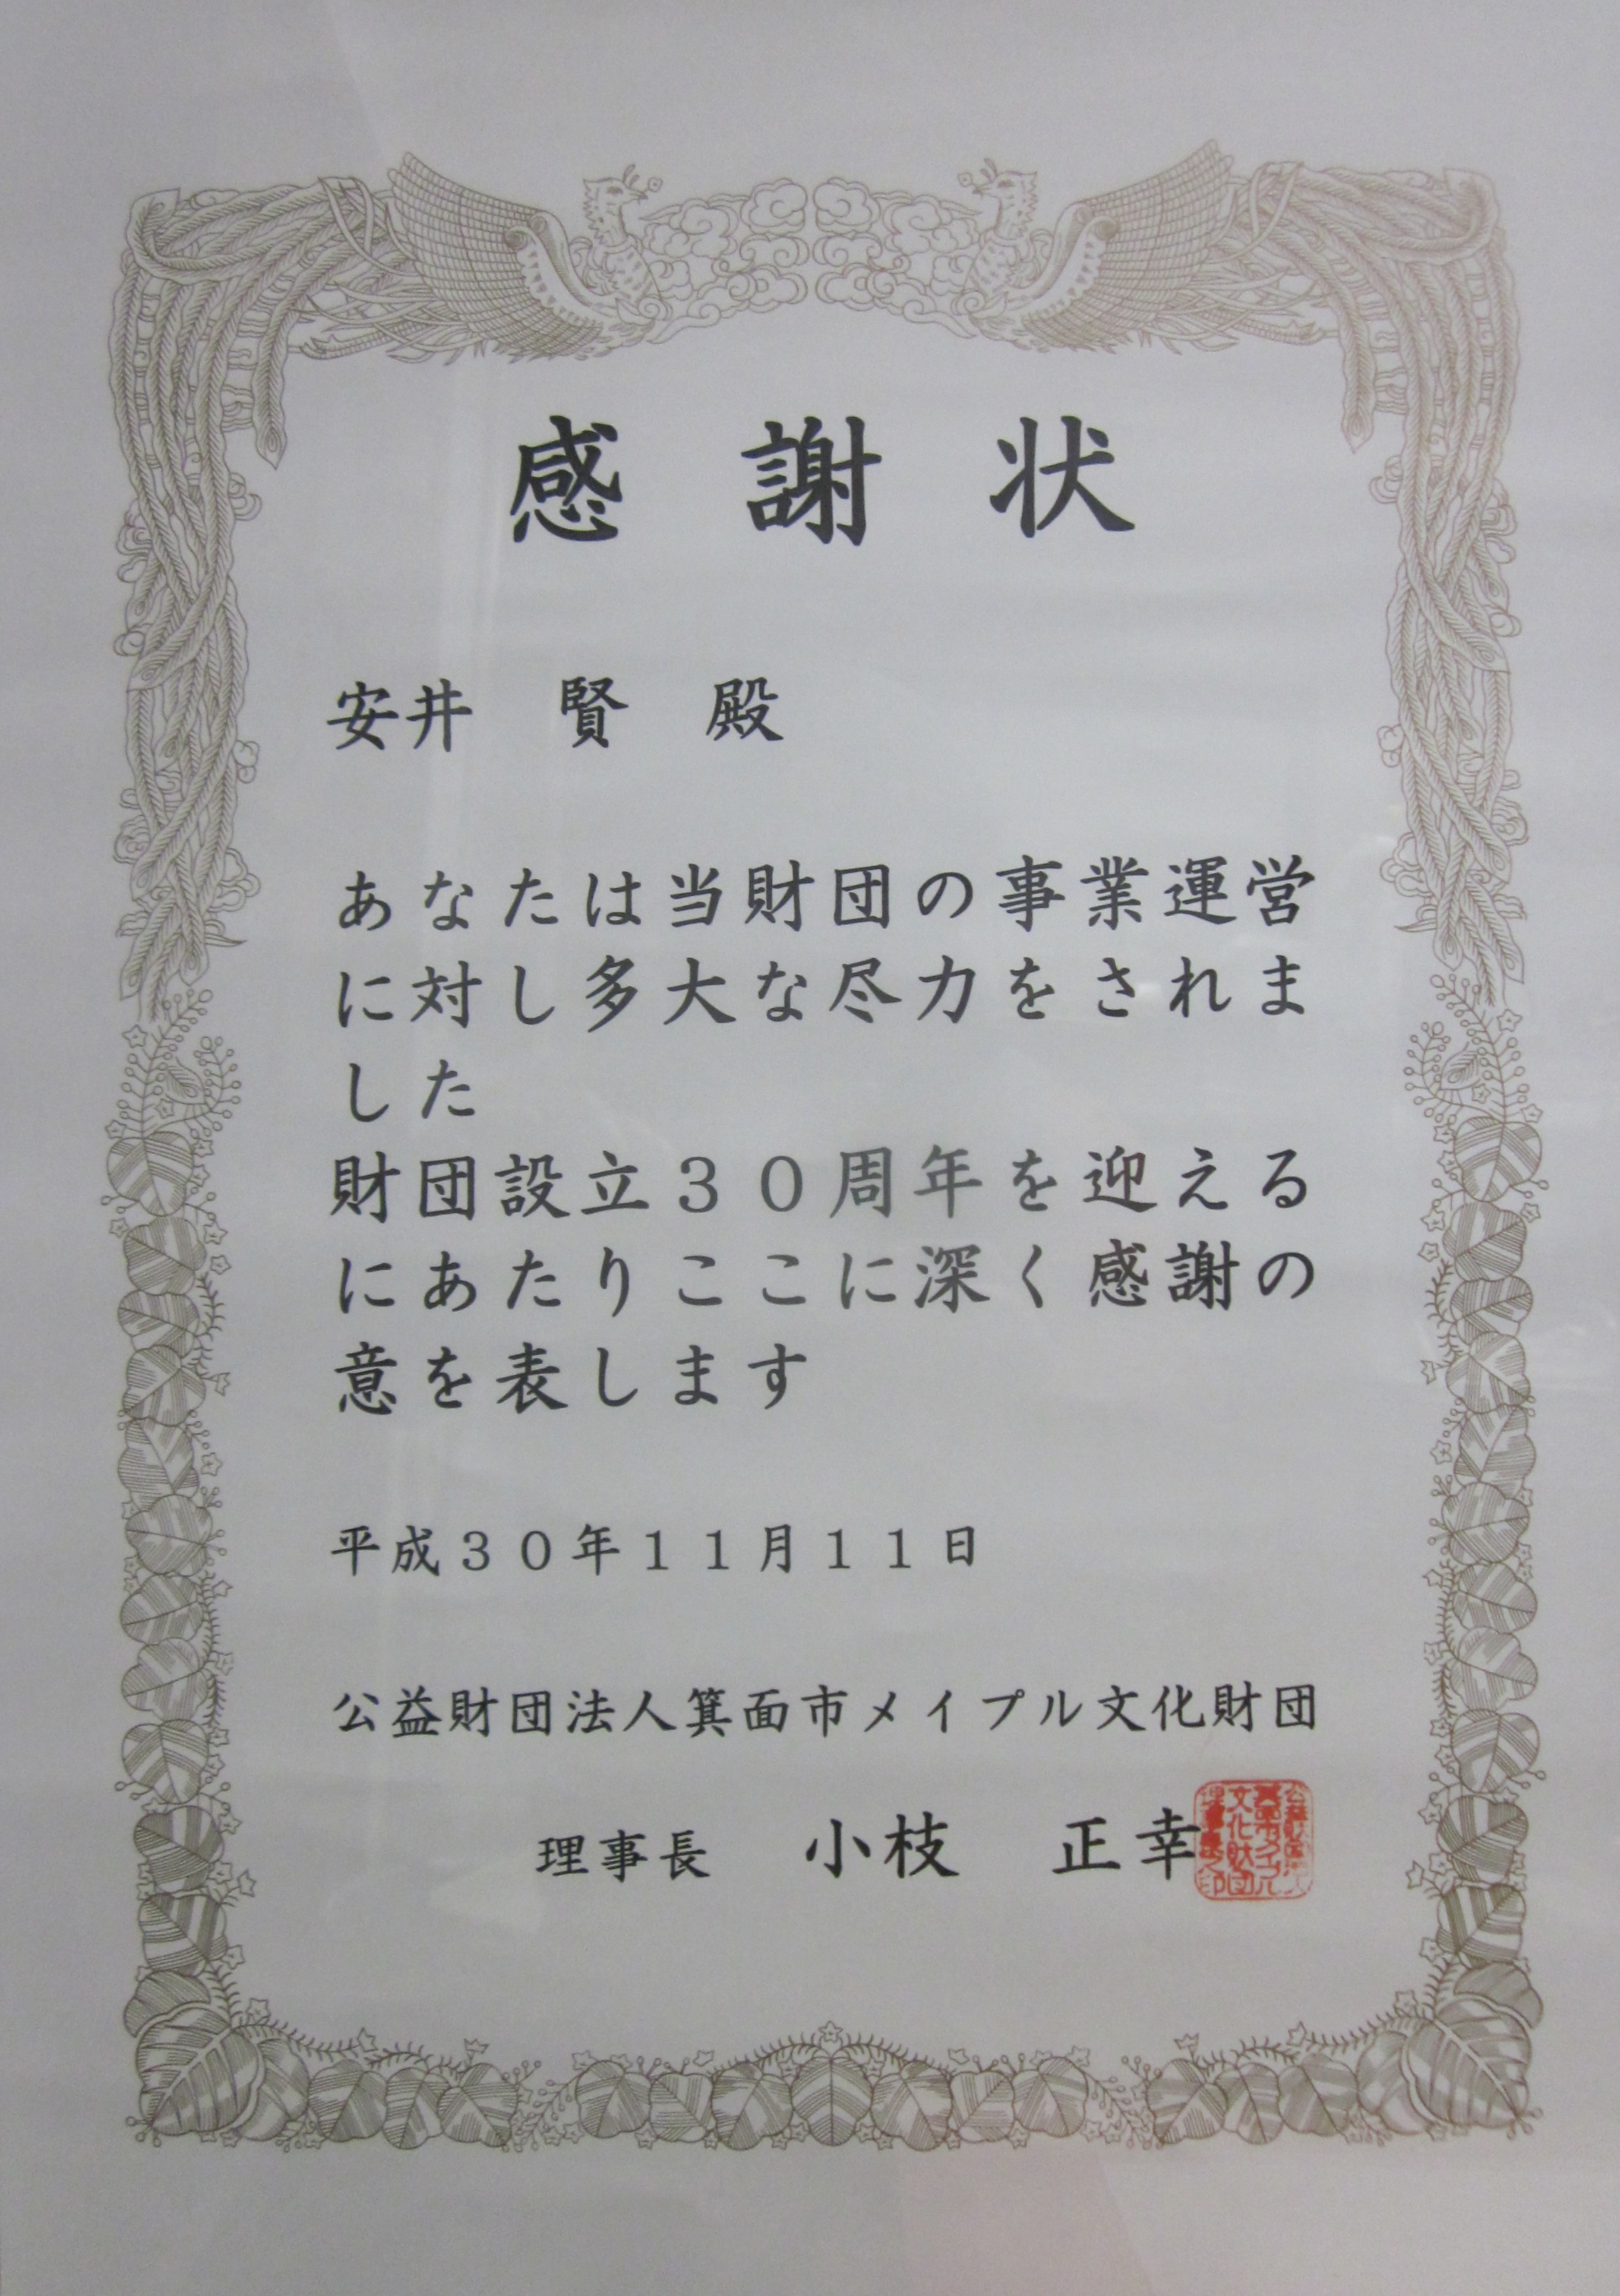 感謝状
安井　賢　殿
あなたは当財団の事業運営
に対し多大な尽力をされま
した
財団設立３０周年を迎える
にあたりここに深く感謝の
意を表します
平成３０年１１月１１日
公益財団法人箕面市メイプル文化財団
理事長　小枝　正幸